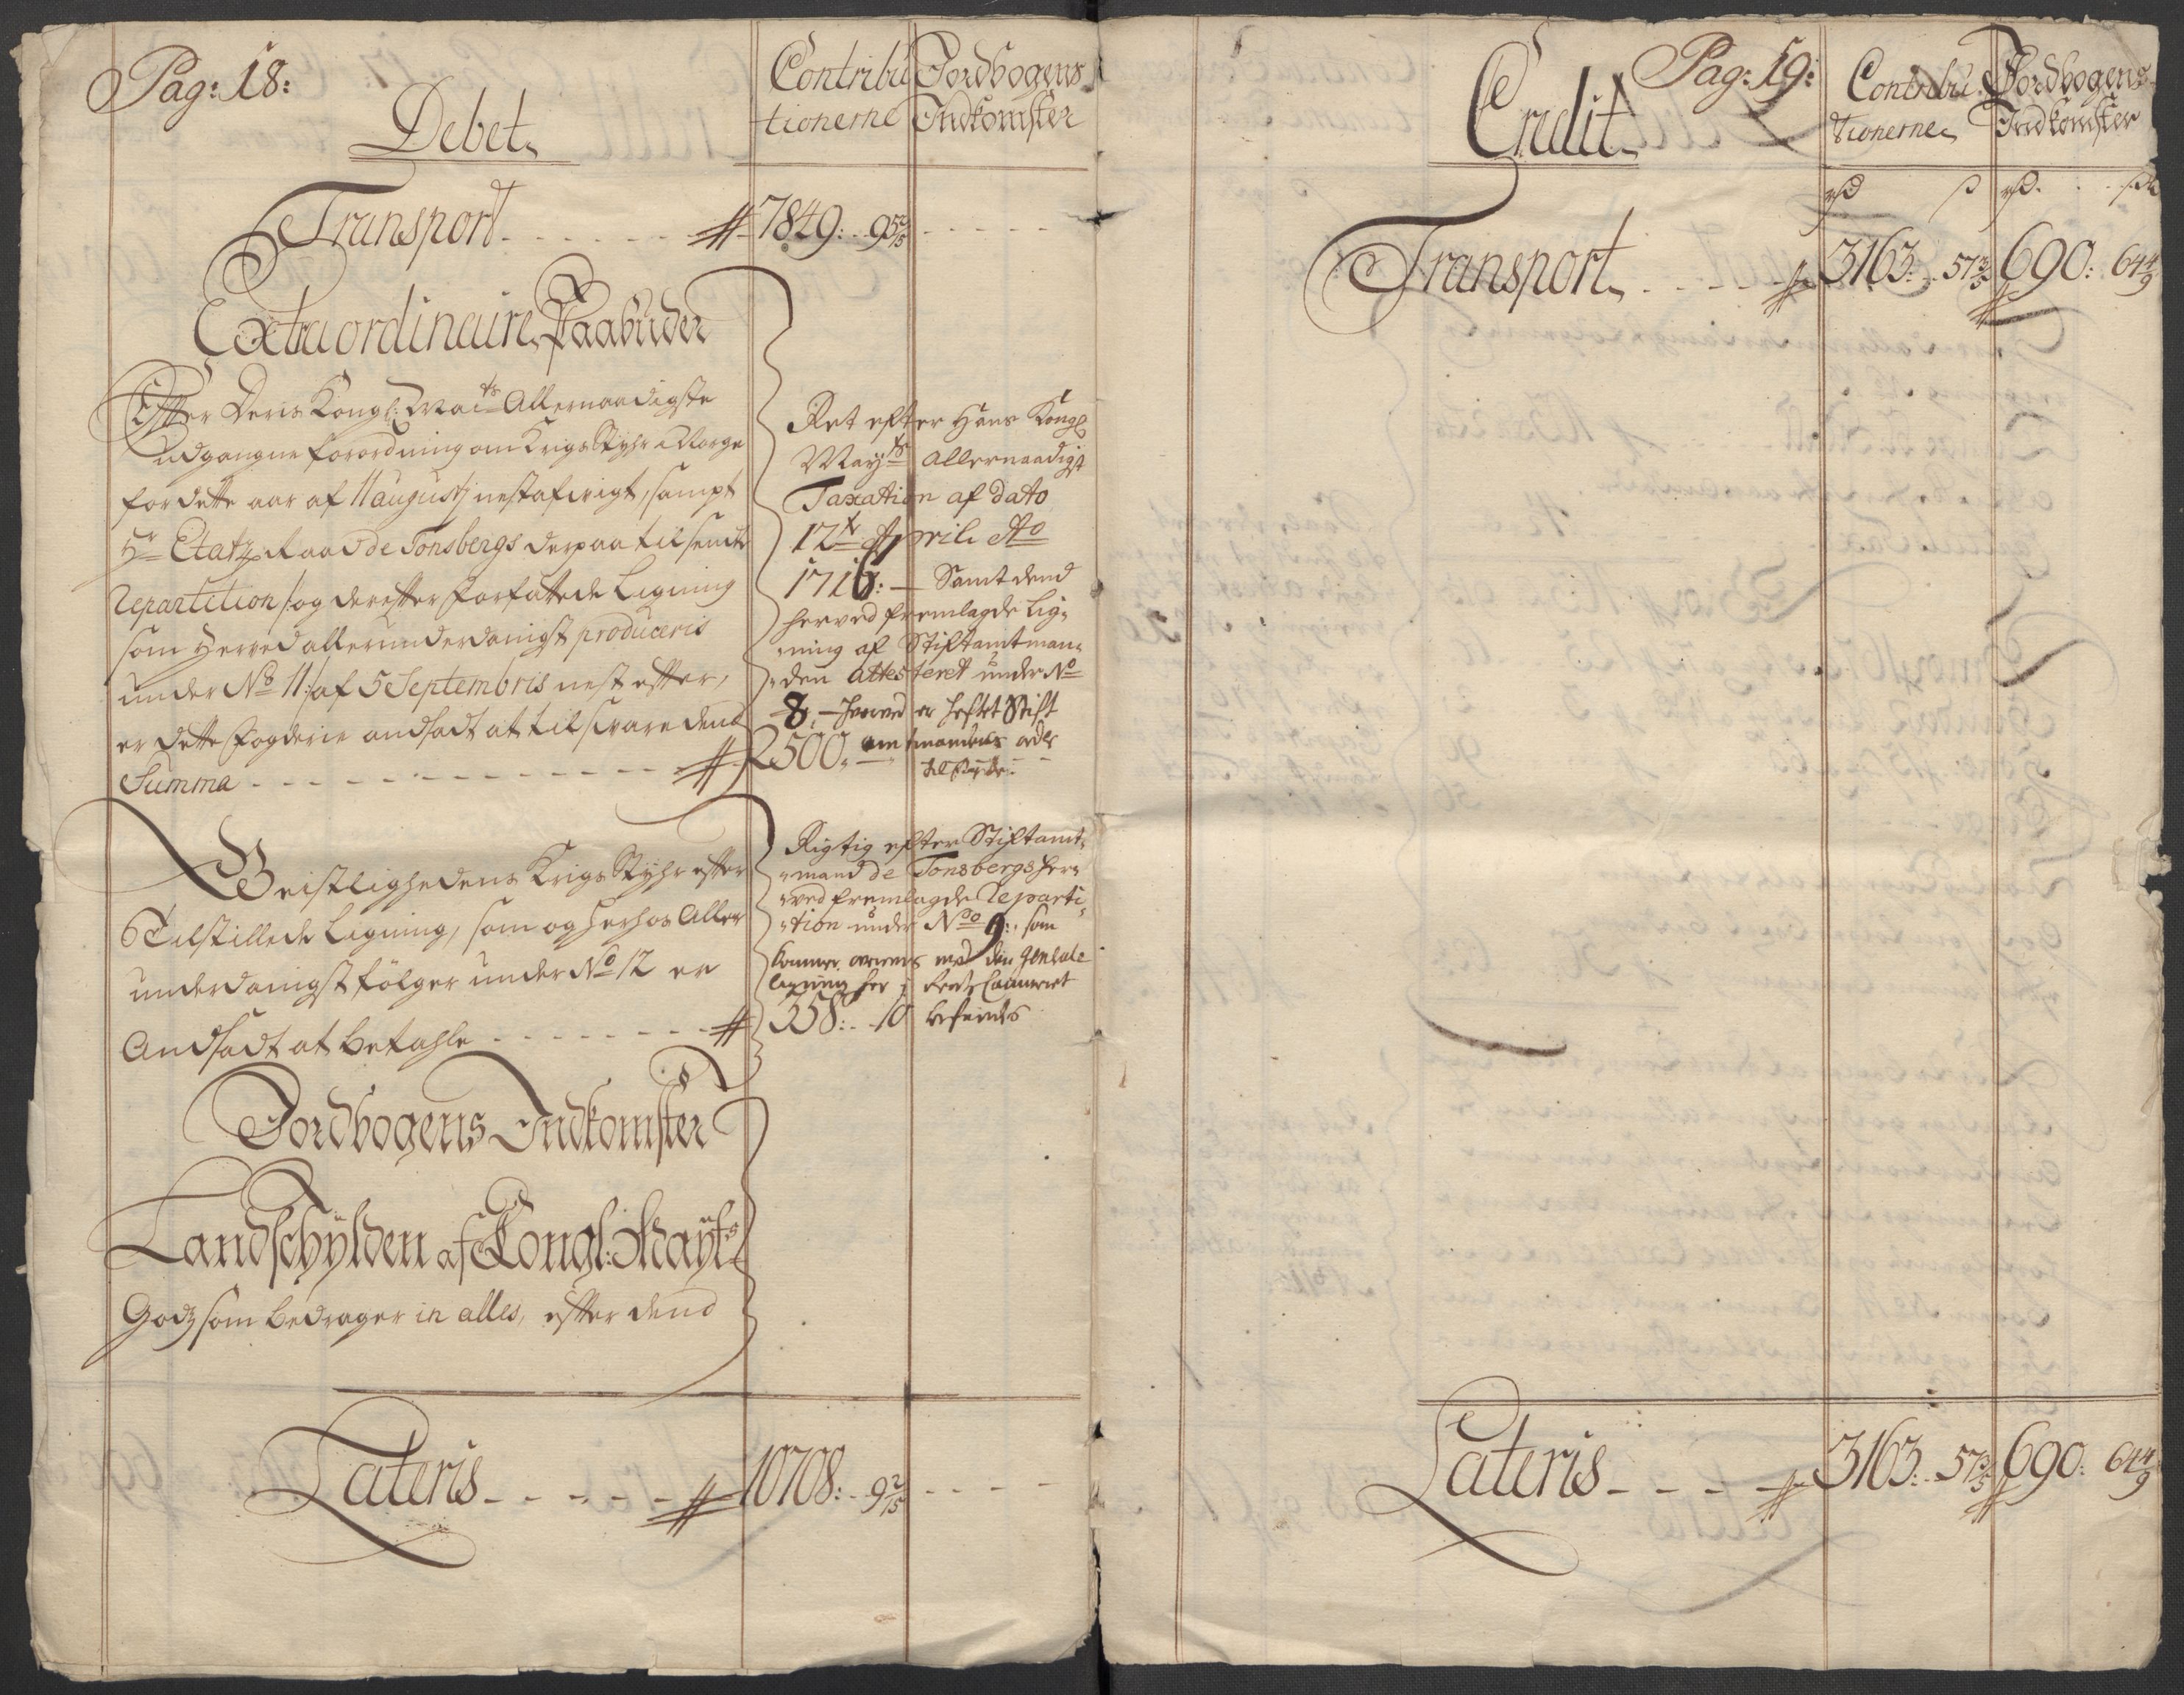 Pag: 18:
Debet,
Contribu
tionerne
Jordbogens
Indkomster
Transport - - - - - - 7849: 9 2/15 - - - - -
Extraordinaire Paabuder
Efter Deris Kongl: Mai.ts Allernaadigste
udgangne forordning om Krigs Styhr i Norge
for dette aar af 11 augustj nestafvigt, sampt
Hr Etatz Raad de Tonsbergs derpaa tilsendte
Repartition /: og derefter forfattede Ligning
som Herved allerunderdanigst produceris
under No 11: /af 5 Septembris nest efter,
er dette Fogderie andsadt at tilsvare dend
Summa - - - - - - - - - - - - - 2500, - -
Ret efter Hans Kongl
May.ts allernaadigst
Taxation af dato
12.t April Ao
1716: - Samt dend
herved fremlagde Lig-
-ning af Stiftamtman-
-den attesteret under No
8, - hvorved er heftet Stift
amtmandens ordr
Geistlighedens Krigs Styhr efter
Tilstillede Ligning, som og herhos Aller
underdanigst følger under No 12 er
Andsadt at betahle - - - - - - - 358: - 10
Rigtig efter Stiftamt-
-mand de Tonsbergs her-
-ved fremlagde Reparti-
-tion under No 9: som
kommer overeens med den Generale
ligning her i Rente Cammeret
befindes
Jordbogens Indkomster
Landschylden af Kongl: Mayts
Godz som bedrager in alles, efter dend
Lateris - - - - - - 10708: 9 2/15 - - - -
Pag: 19:
Credit
Contribu
tionerne
Jordbogens
Indkomster
rd ß rd. ß
Transport - - - - - 3163: 57 3/5 690: 64 4/9
Lateris - - - - 3163: 57 3/5 690: 64 4/9